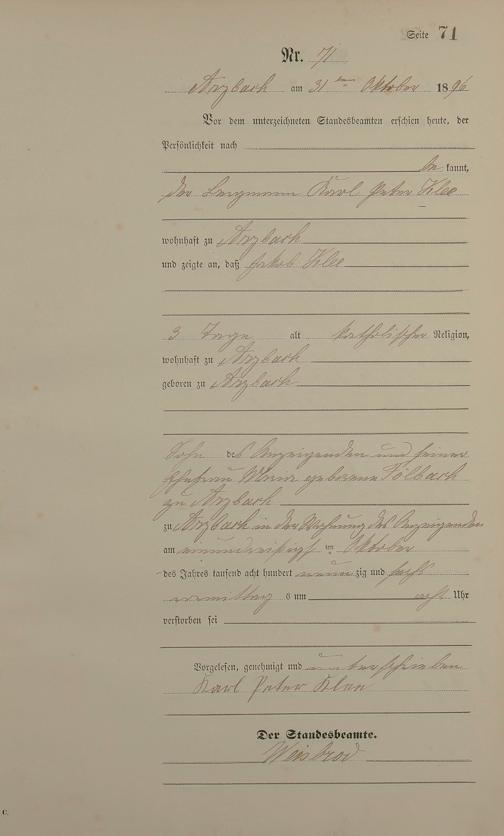 Seite 71
Nr. 71
Arzbach am 31ten Oktober 1896
Vor dem unterzeichneten Standesbeamten erschien heute, der
Persönlichkeit nach
be kannt,
der Bergmann Karl Peter Klee
wohnhaft zu Arzbach
und zeigte an, daß Jakob Klee
3 Tage alt katholischer Religion,
wohnhaft zu Arzbach
geboren zu Arzbach
Sohn des Anzeigenden und seiner
Ehefrau Maria geborene Fölbach
zu Arzbach
zu Arzbach in der Wohnung des Anzeigenden
am einunddreißigsten Oktober
des Jahres tausend acht hundert neunzig und sechs
vormittags um acht Uhr
verstorben sei
Vorgelesen, genehmigt und unterschrieben
Karl Peter Klee
Der Standesbeamte.
Weisbrod
C.